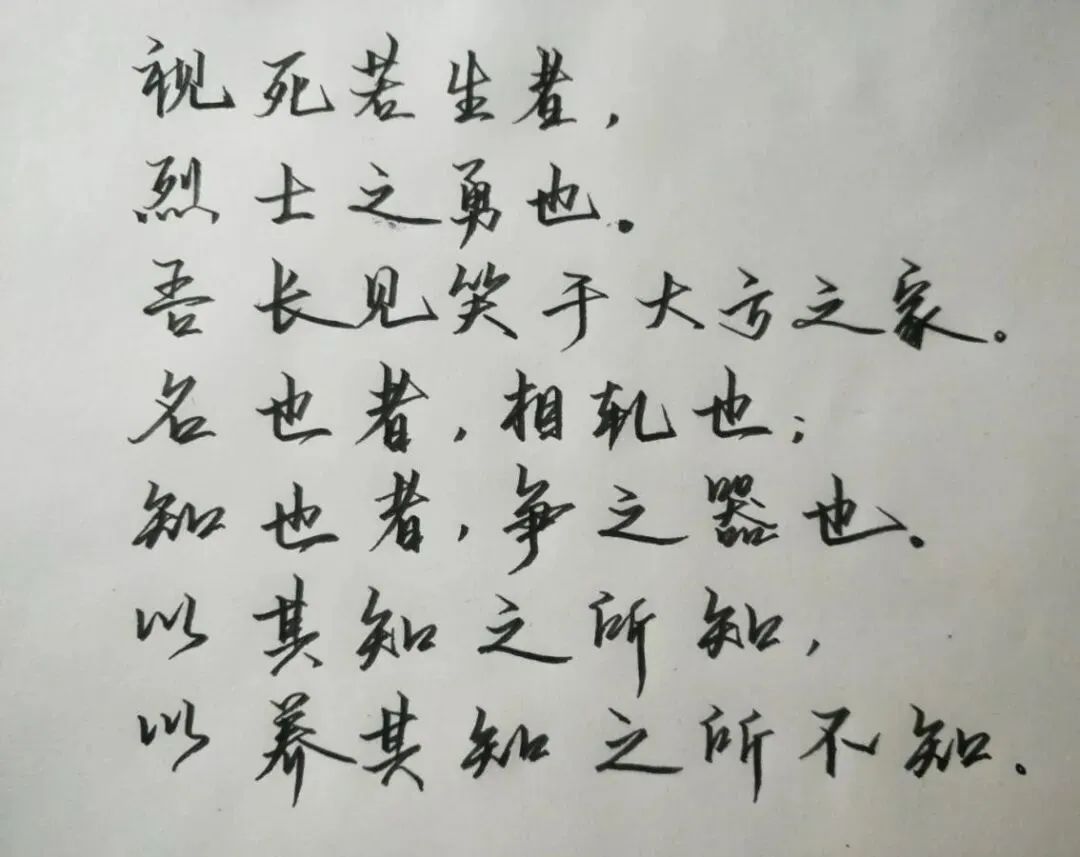 视死若生者，
烈士之勇也。
吾长见笑于大方之家。
名也者，相轧也；
知也者，争之器也。
以其知之所知，
以养其知之所不知。